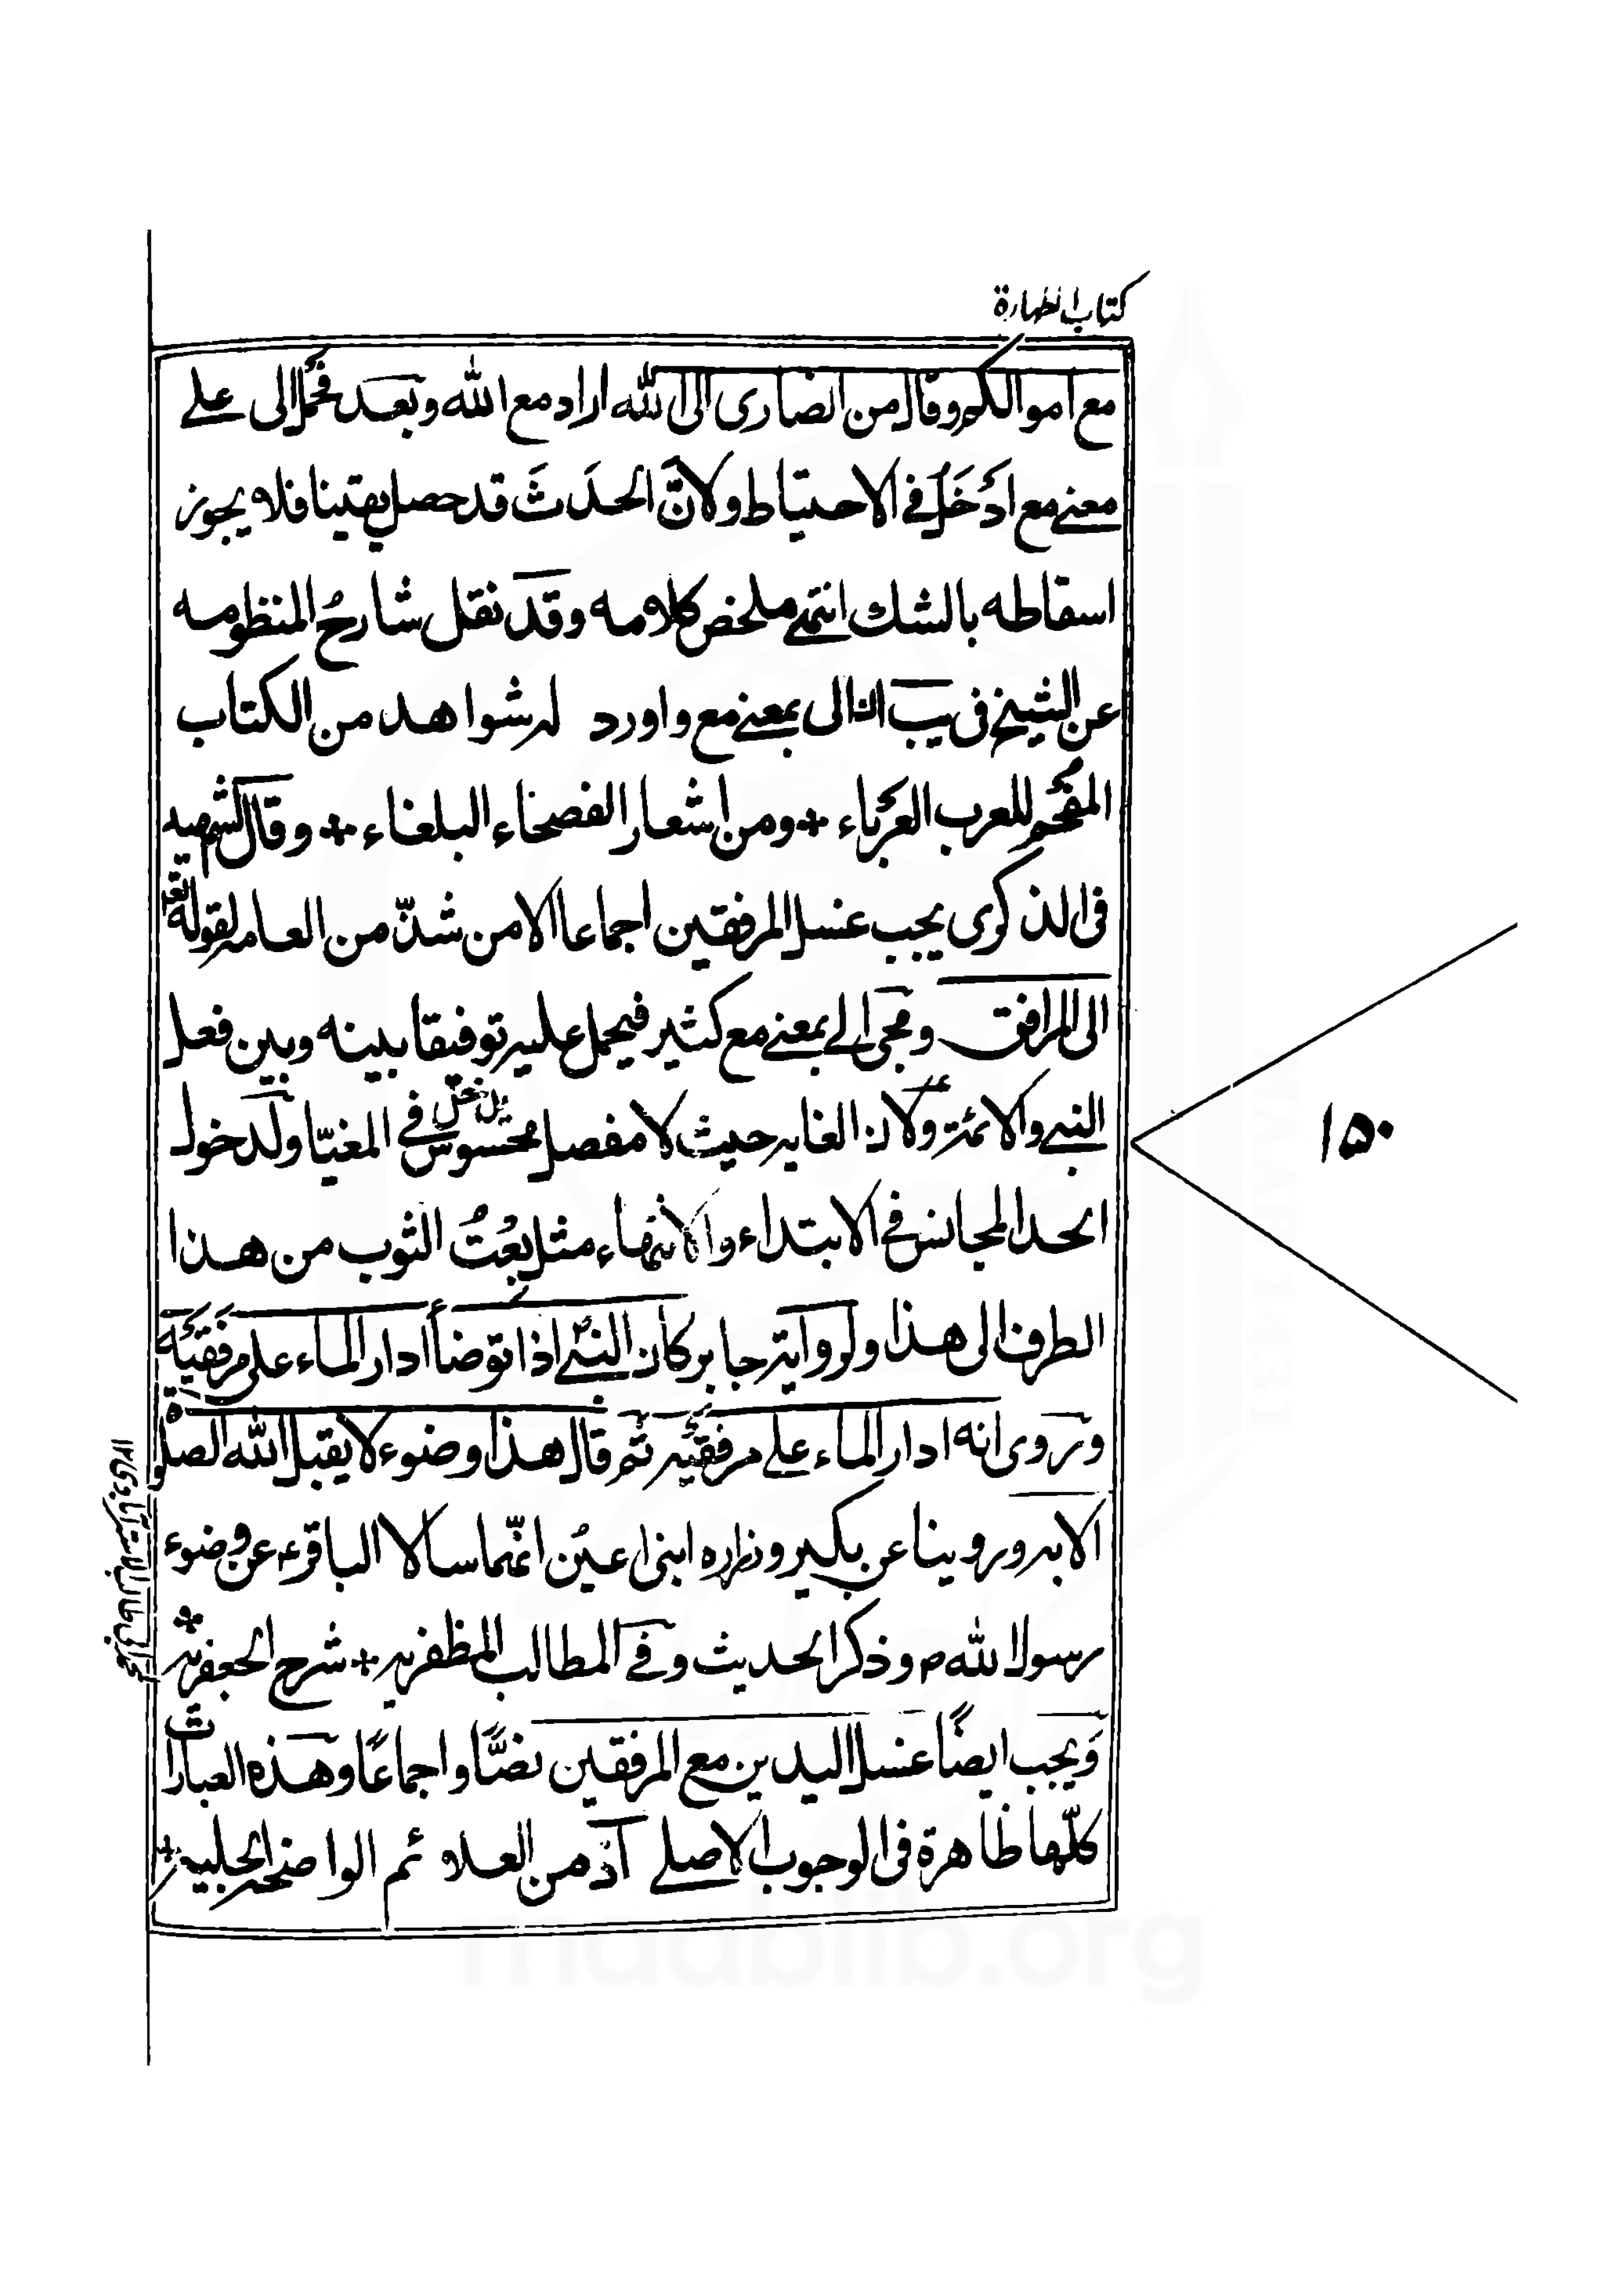 كتاب الطهارة
مع اموالكم وقال من انصارى الى الله اراد مع الله وبعد فحمل الى على
معنى مع ادخل فى الاحتياط ولانّ الحدث قد حصل يقينا فلا يجوز
اسقاطه بالشك انتهى ملخص كلامه وقد نقل شارح المنظومه
عن الشيخ فى يب ان الى بمعنى مع واورد له شواهد من الكتاب
المفحم للعرب العرباء ومن اشعار الفصحاء البلغاء وقال الشهيد
فى الذكرى يجب غسل المرفقين اجماعا الا من شذّ من العامه لقوله تعالى
الى المرافق ومجئ الى بمعنى مع كثير فيحمل عليه توفيقا بينه وبين فعل
النبى والائمة ولان الغايه حيث لا مفصل محسوس تدخل في المغيّا ولدخول
الحد المجانس فى الابتداء والانتهاء مثل بعت الثوب من هذا
الطرف الى هذا ولرواية جابر كان النبى اذا توضأ أدار الماء على مرفقيه
ويروى انه ادار الماء على مرفقيه ثم قال هذا وضوء لا يقبل الله الصلوة
الا به وروينا عن بكير وزراره ابنى اعين انّهما سالا الباقر ع عن وضوء
رسول الله ص وذكر الحديث وفى المطالب المظفريه شرح الجعفريه
ويجب ايضًا غسل اليدين مع المرفقين نصًّا واجماعًا وهذه العبارات
كلّها ظاهرة فى الوجوب الاصلى اذ من العلائم الواضحه الجليه
١٥٠
maablib.org